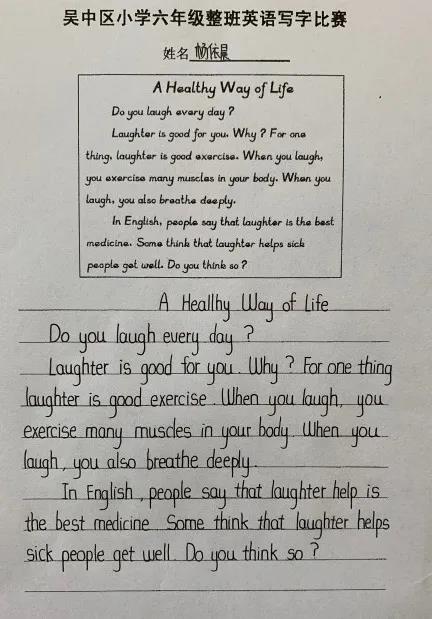 吴中区小学六年级整班英语写字比赛
姓名 杨依晨
A Healthy Way of Life
Do you laugh every day?
Laughter is good for you. Why? For one
thing, laughter is good exercise. When you laugh,
you exercise many muscles in your body. When you
laugh, you also breathe deeply.
In English, people say that laughter is the best
medicine. Some think that laughter helps sick
people get well. Do you think so?
A Heallhy Way of Life
Do you laugh every day ?
Laughter is good for you. Why ? For one thing
laughter is good exercise. When you laugh, you
exercise many muscles in your body. When you
laugh, you also breathe deeply.
In English, people say that laughter help is
the best medicine. Some think that laughter helps
sick people get well. Do you think so ?